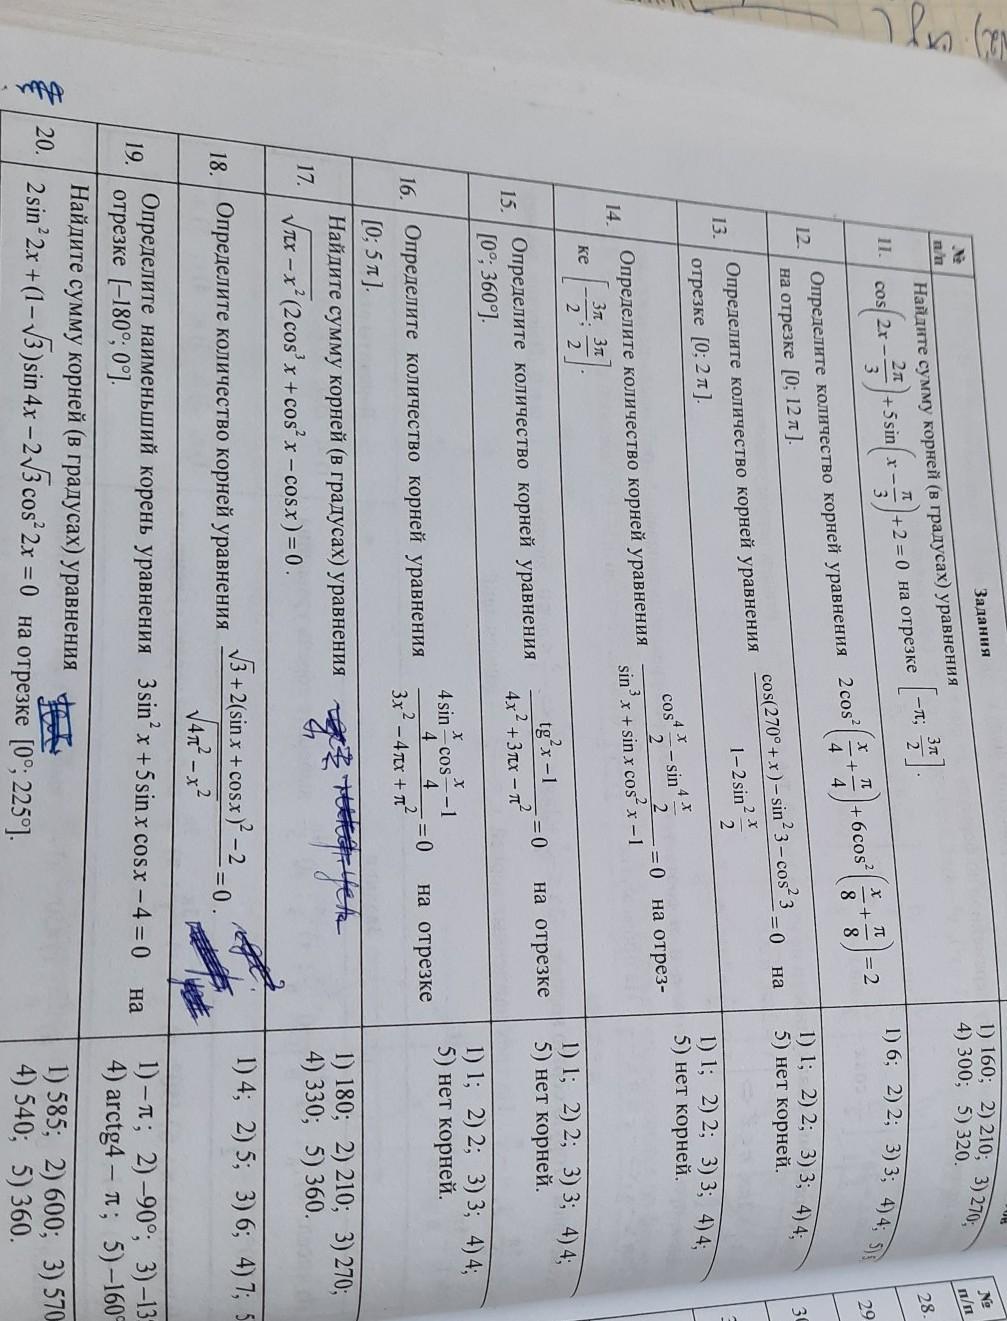 №
п/п
Задания
11. Найдите сумму корней (в градусах) уравнения
cos(2x − 2π/3) + 5sin(x − π/3) + 2 = 0 на отрезке [−π; 3π/2].
1) 160; 2) 210; 3) 270;
4) 300; 5) 320.
12. Определите количество корней уравнения 2cos²(x/4 + π/4) + 6cos²(x/8 + π/8) = 2
на отрезке [0; 12π].
1) 6; 2) 2; 3) 3; 4) 4; 5)
13. Определите количество корней уравнения (cos(270° + x) − sin²3 − cos²3)/(1 − 2sin² x/2) = 0 на
отрезке [0; 2π].
1) 1; 2) 2; 3) 3; 4) 4;
5) нет корней.
14. Определите количество корней уравнения (cos⁴ x/2 − sin⁴ x/2)/(sin³x + sinx cos²x − 1) = 0 на отрез-
ке [−3π/2; 3π/2].
1) 1; 2) 2; 3) 3; 4) 4;
5) нет корней.
15. Определите количество корней уравнения (tg²x − 1)/(4x² + 3πx − π²) = 0 на отрезке
[0°; 360°].
1) 1; 2) 2; 3) 3; 4) 4;
5) нет корней.
16. Определите количество корней уравнения (4sin x/4 cos x/4 − 1)/(3x² − 4πx + π²) = 0 на отрезке
[0; 5π].
1) 1; 2) 2; 3) 3; 4) 4;
5) нет корней.
17. Найдите сумму корней (в градусах) уравнения
√(πx − x²)(2cos³x + cos²x − cosx) = 0.
1) 180; 2) 210; 3) 270;
4) 330; 5) 360.
18. Определите количество корней уравнения (√3 + 2(sinx + cosx)² − 2)/√(4π² − x²) = 0.
1) 4; 2) 5; 3) 6; 4) 7; 5
19. Определите наименьший корень уравнения 3sin²x + 5sinx cosx − 4 = 0 на
отрезке [−180°; 0°].
1) −π; 2) −90°; 3) −13
4) arctg4 − π; 5) −160°
20. Найдите сумму корней (в градусах) уравнения
2sin²2x + (1 − √3)sin4x − 2√3cos²2x = 0 на отрезке [0°; 225°].
1) 585; 2) 600; 3) 570
4) 540; 5) 360.
№
п/п
28.
29